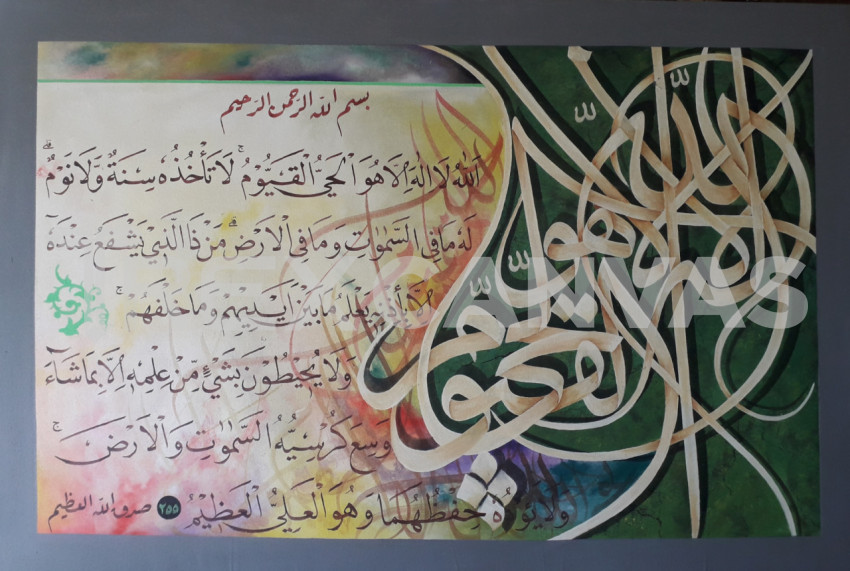 بسم الله الرحمن الرحيم
اَللّٰهُ لَا اِلٰهَ اِلَّا هُوَ الْحَيُّ الْقَيُّوْمُ ۚ لَا تَأْخُذُهٗ سِنَةٌ وَّلَا نَوْمٌ ۗ
لَهٗ مَا فِى السَّمٰوٰتِ وَمَا فِى الْاَرْضِ ۗ مَنْ ذَا الَّذِيْ يَشْفَعُ عِنْدَهٗٓ
اِلَّا بِاِذْنِهٖ يَعْلَمُ مَا بَيْنَ اَيْدِيْهِمْ وَمَا خَلْفَهُمْ ۚ
وَلَا يُحِيْطُوْنَ بِشَيْءٍ مِّنْ عِلْمِهٖٓ اِلَّا بِمَا شَاۤءَ
وَسِعَ كُرْسِيُّهُ السَّمٰوٰتِ وَالْاَرْضَ ۚ
وَلَا يَـُٔوْدُهٗ حِفْظُهُمَا وَهُوَ الْعَلِيُّ الْعَظِيْمُ ٢٥٥ صدق الله العظيم
الله لا اله الا هو
الحي القيوم
CANVAS